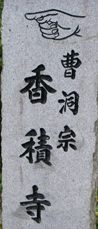 曹洞宗
香積寺